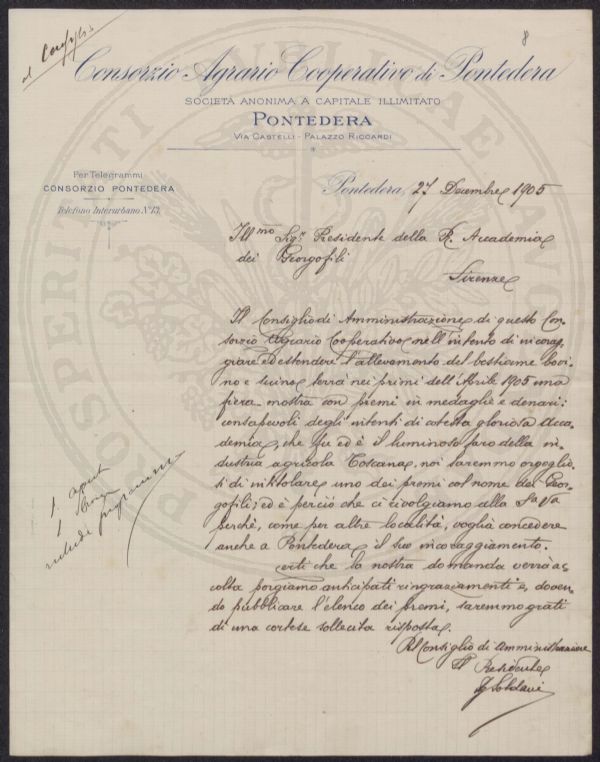 al Consiglio
8
Consorzio Agrario Cooperativo di Pontedera
SOCIETÀ ANONIMA A CAPITALE ILLIMITATO
PONTEDERA
VIA CASTELLI - PALAZZO RICCARDI
Per Telegrammi
CONSORZIO PONTEDERA
Telefono Interurbano N.º 13.
Pontedera, 27 Decembre 1905
Ill.mo Sigr Presidente della R. Accademia
dei Georgofili
Firenze
Il Consiglio di Amministrazione di questo Con-
sorzio Agrario Cooperativo nell'intento di incorag-
giare ed estendere l'allevamento del bestiame bovi-
no e suino terrà nei primi dell'Aprile 1905 una
fiera-mostra con premi in medaglie e denari:
consapevoli degli intenti di cotesta gloriosa Acca-
demia, che fu ed è il luminoso faro della in-
dustria agricola Toscana, noi saremmo orgoglio-
si di intitolare uno dei premi col nome dei Geor-
gofili; ed è perciò che ci rivolgiamo alla Sa Va
perchè, come per altre località, voglia concedere
anche a Pontedera il suo incoraggiamento.
erti che la nostra domanda verrà ac
colta porgiamo anticipati ringraziamenti e, doven-
do pubblicare l'elenco dei premi, saremmo grati
di una cortese sollecita risposta.
Pel Consiglio di Amministrazione
Il Presidente
1. argent
1 bronzo
richiede programma
PROSPERITATI